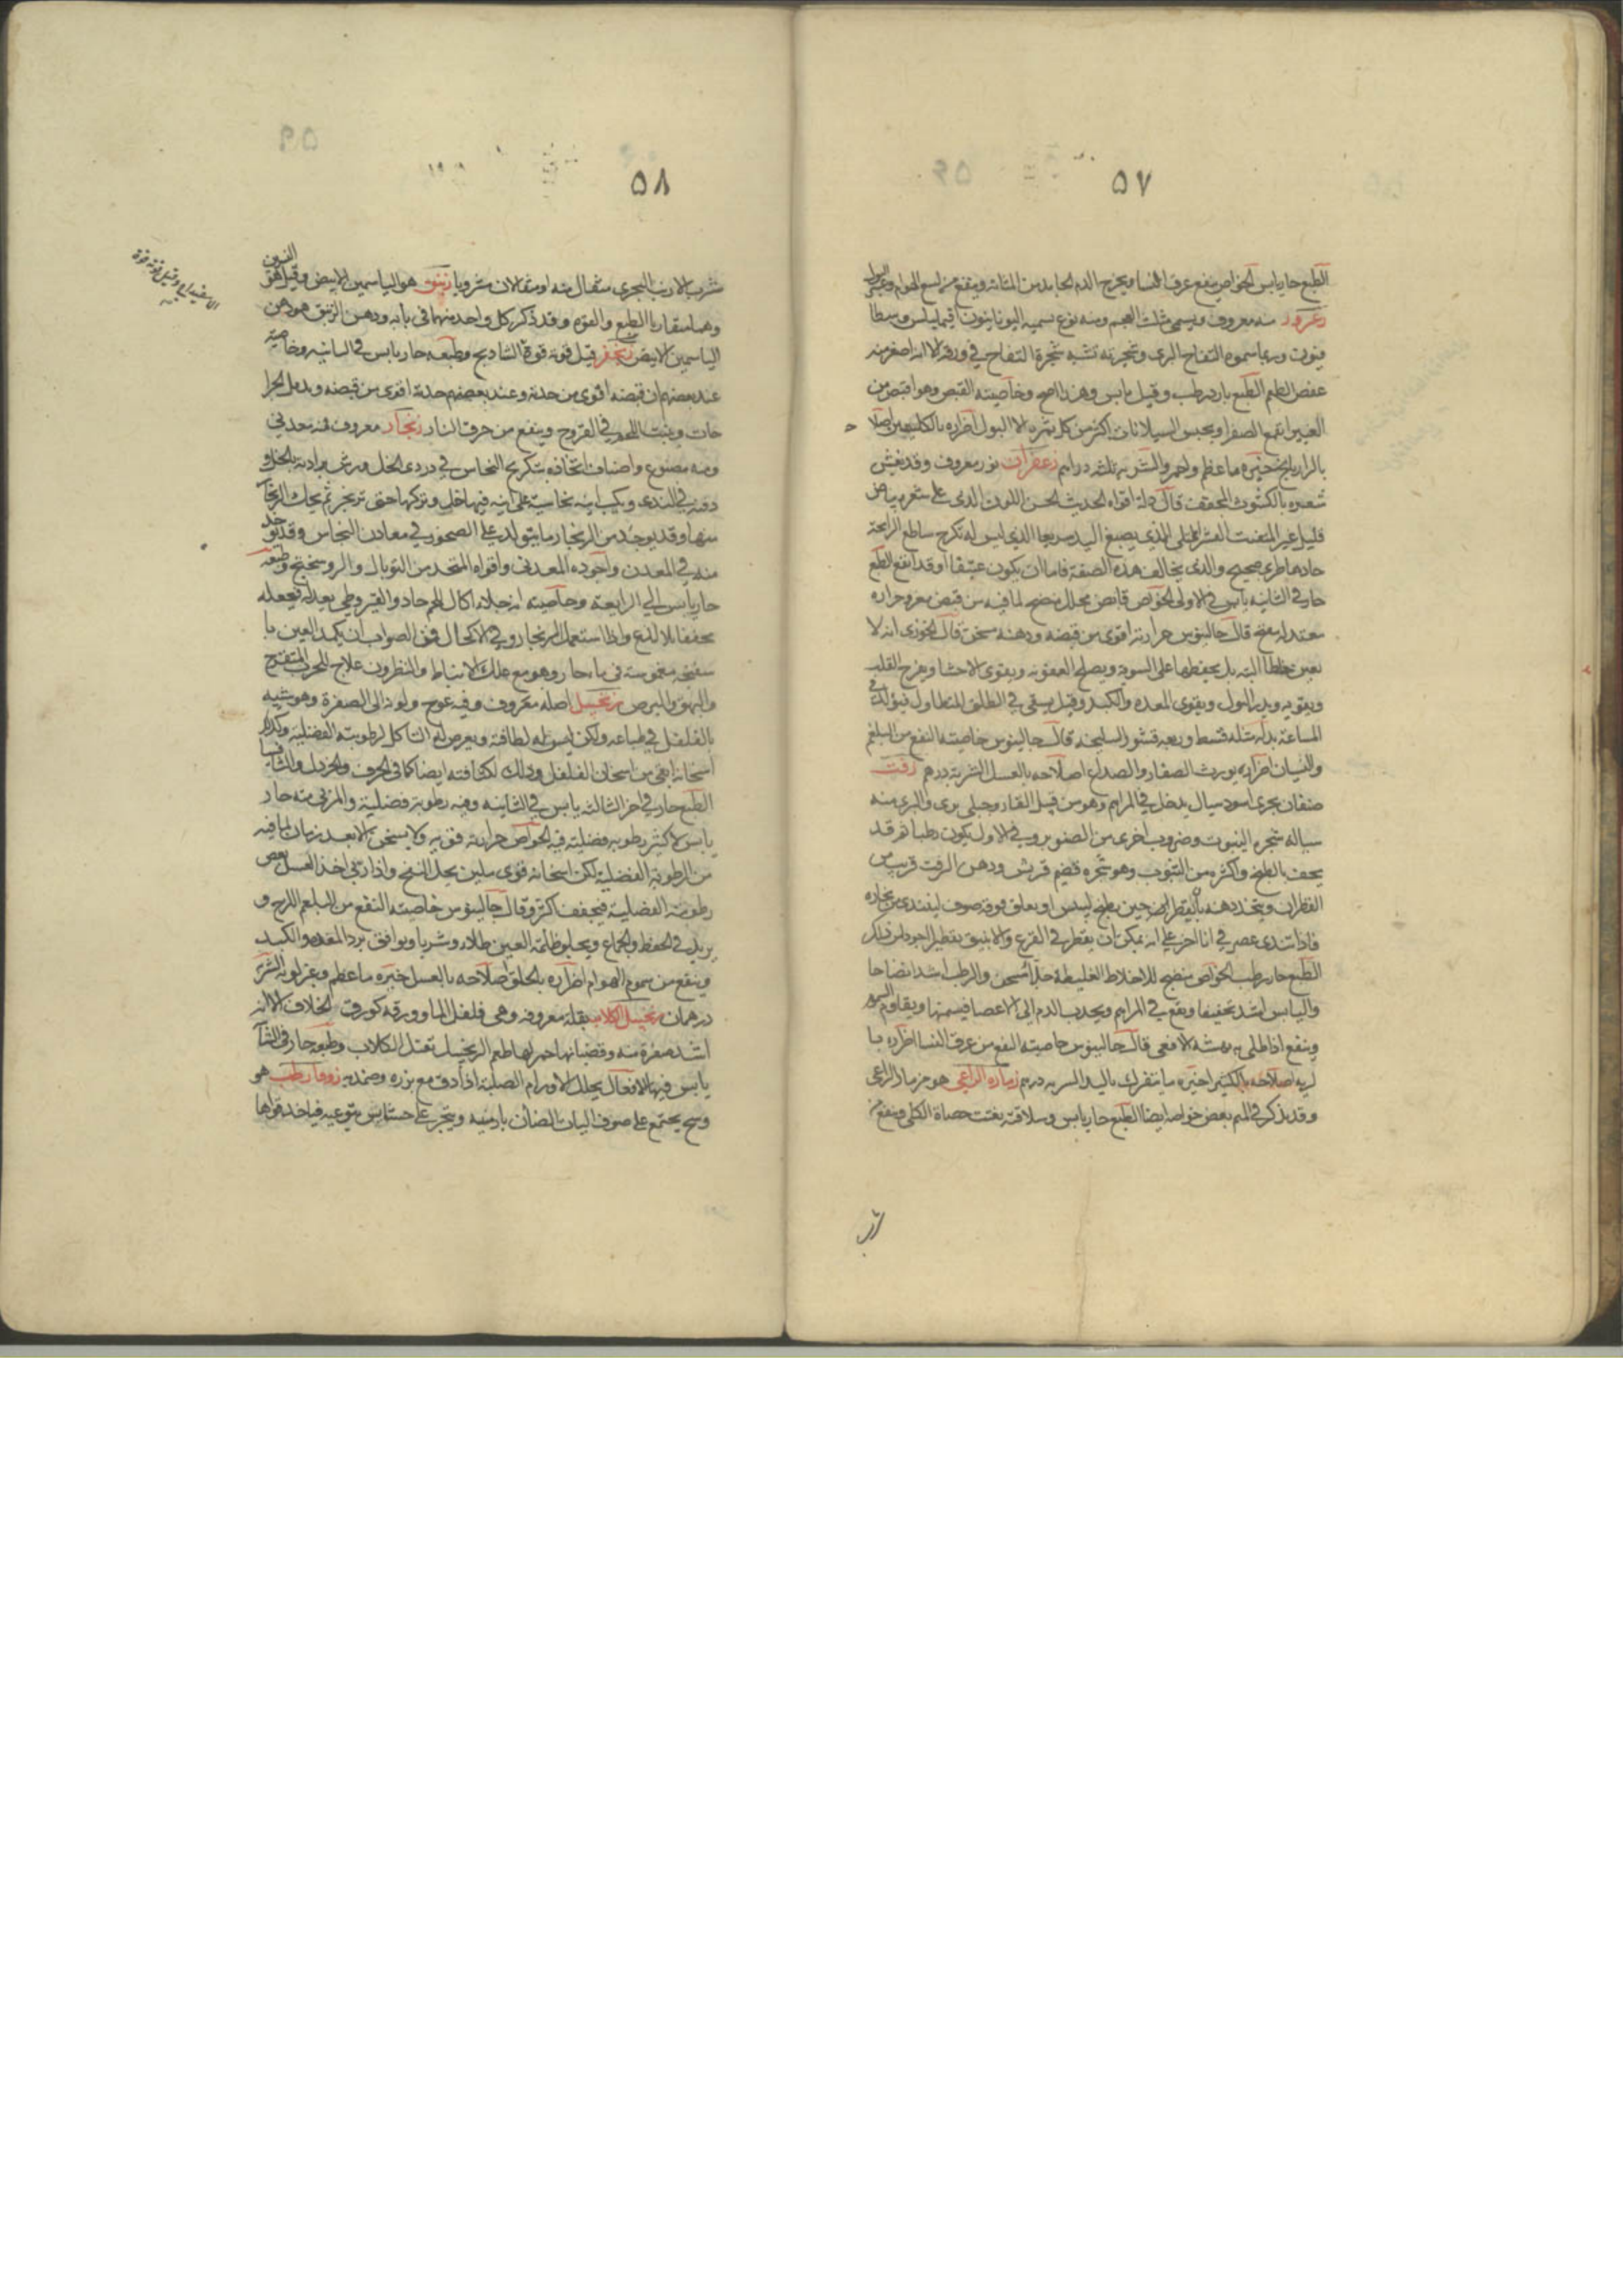 ٥٧
الطبع حار يابس الخواص ينفع عرق النسا ويخرج الدم الجامد من المثانه وينفع من لسع الهوام وعسر البول
زعرور منه معروف ويسمى مثلث العجم ومنه نوع تسميه اليونانيون
وربما سموه التفاح البرى وشجرته تشبه شجرة التفاح في ورقه الا انه اصغر منه
عفص الطعم الطبع بارد رطب وقيل يابس وهذا اصح وخاصيته القبض وهو اقبض من
الغبيرا يقمع الصفرا ويحبس السيلانات اكثر من كل ثمره لا البول اضراره بالكليتين اصلا
بالرازيانج خيره ما عظم واحمر والشربه ثلثه دراهم زعفران نور معروف وقد يغش
قال اقواه الحديث الحسن اللون الذى على شعره بياض
قليل غير المتفتت الممتلى الذى يصبغ اليد سريعا الذى ليس له تكرج ساطع الرايحة
حادها طرى صحيح والذى يخالف هذه الصفة فاما ان يكون عتيقا او قد انقع الطبع
حار في الثانيه يابس في الاولى الخواص قابض محلل منضج لما فيه من قبض مغر وحراره
معتدله مفتح قال جالينوس حرارته اقوى من قبضه ودهنه مسخن قال الخوزى انه لا
يغير خلطا البته بل يحفظها على السويه ويصلح العفونه ويقوى الاحشا ويفرح القلب
ويقويه ويدر البول ويقوى المعده والكبد وقيل يسقى في الطلق المتطاول فيولد في
الساعة بدله مثله قسط وربعه قشور السليخه قال جالينوس خاصيته النفع من البلغم
والنسيان اضراره يورث الصفار والصداع اصلاحه بالعسل الشربه درهم زفت
صنفان بحرى اسود سيال يدخل في المراهم وهو من قبيل القار وجبلى برى والبرى منه
سياله شجره الينبوت وضروب اخرى من الصنوبر وفي الاول يكون رطبا ثم قد
يجف بالطبخ واكثره من التنوب وهو شجره قضم قريش ودهن الزفت قريب من
القطران ويتخذ دهنه حين يطبخ او يعلق فوقه صوف ليتندى من بخاره
فاذا تندى عصر في انا اخر على انه يمكن ان يقطر في القرع والانبيق بقطير اجود من ذلك
الطبع حار رطب الخواص منضج للاخلاط الغليظه جلا مسخن والرطب اشد انضاجا
واليابس اشد تجفيفا ويقع في المراهم ويجذب الدم الى الاعضا فيسمنها ويقاوم السموم
وينفع اذا طلى به نهشه الافعى قال جالينوس خاصيته النفع من عرق النسا اضراره با
لريه اصلاحه بالكثيرا خيره ما يتفرك باليد الشربه درهم زماره الراعى هو مزمار الراعى
وقد يذكر في الميم بعض خواصه ايضا الطبع حار يابس وسلاقته يفتت حصاة الكلى وينفع من
٥٨
شرب الارنب البحرى مثقال منه او مثقالان مشروبا زنبق هو الياسمين الابيض وقيل هو النسرين
وهما متقاربا الطبع والقوه وقد ذكر كل واحد منهما في بابه ودهن الزنبق هو دهن
الياسمين الابيض زنجفر قيل قوته قوة الشاذنج وطبعه حار يابس في الثانيه وخاصيته
عند بعضهم ان قبضه اقوى من حدته وعند بعضهم حدته اقوى من قبضه ويدمل الجرا
حات وينبت اللحم في القروح وينفع من حرق النار زنجار معروف فمنه معدني
ومنه مصنوع واصناف اتخاذه بتكريج النحاس في دردى الخل وبرش برادته بالخل و
دفنه في الندى وبكب انيه نحاسية على انيه فيها خل وتركها حتى تزنجر ثم يحك الزنجار
منها وقد يوجد من الزنجار ما يتولد على الصخور في معادن النحاس وقد يوجد
منه في المعدن واجوده المعدني واقواه المتخذ من التوبال والروسختج وطبعه
حار يابس الى الرابعة وخاصيته انه جلا اكال للحم حاد والقيروطي يعدله فيجعله
مجففا بلا لذع واذا استعمل الزنجار في الاكحال فمن الصواب ان يكمد العين با
سفنجه مغموسة في ماء حار وهو مع علك الانباط والنطرون علاج الجرب المتقرح
والبهق والبرص زنجبيل اصله معروف وفيه عوج ولونه الى الصفرة وهو شبيه
بالفلفل في طباعه ولكن ليس له لطافته ويعرض له التاكل لرطوبته الفضلية ولذلك
اسخانه ابقى من اسخان الفلفل وذلك لكثافته ايضا كما في الحرف والخردل والثافسيا
الطبع حار في اخر الثالثه يابس في الثانيه وفيه رطوبة فضلية والمربى منه حار
يابس لا كثير رطوبه فضليه فيه الخواص حرارته قويه ولا يسخن الا بعد زمان لما فيه
من الرطوبة الفضلية لكن اسخانه قوى ملين يحل النفخ واذا ربى اخذ العسل بعض
رطوبته الفضلية فيجفف اكثر وقال جالينوس خاصيته النفع من البلغم اللزج و
يزيد في الحفظ والجماع ويجلو ظلمة العين طلاء وشربا ويوافق برد المعده والكبد
وينفع من سموم الهوام اضراره بالحلق اصلاحه بالعسل خيره ما عظم الشربة
درهمان زنجبيل الكلاب بقلة معروفه وهى فلفل الما وورقه كورق الخلاف الا انه
اشد صفرة منه وقضبانها حمر لها طعم الزنجبيل تقتل الكلاب وطبعه حار في الثا
يابس فيها الافعال يحلل الاورام الصلبة اذا دق مع بزره وضمد به زوفا رطب هو
وسخ يجتمع على صوف اليات الضان بارمنيه وينجر على حشايش يتوعيه فياخذ قواها